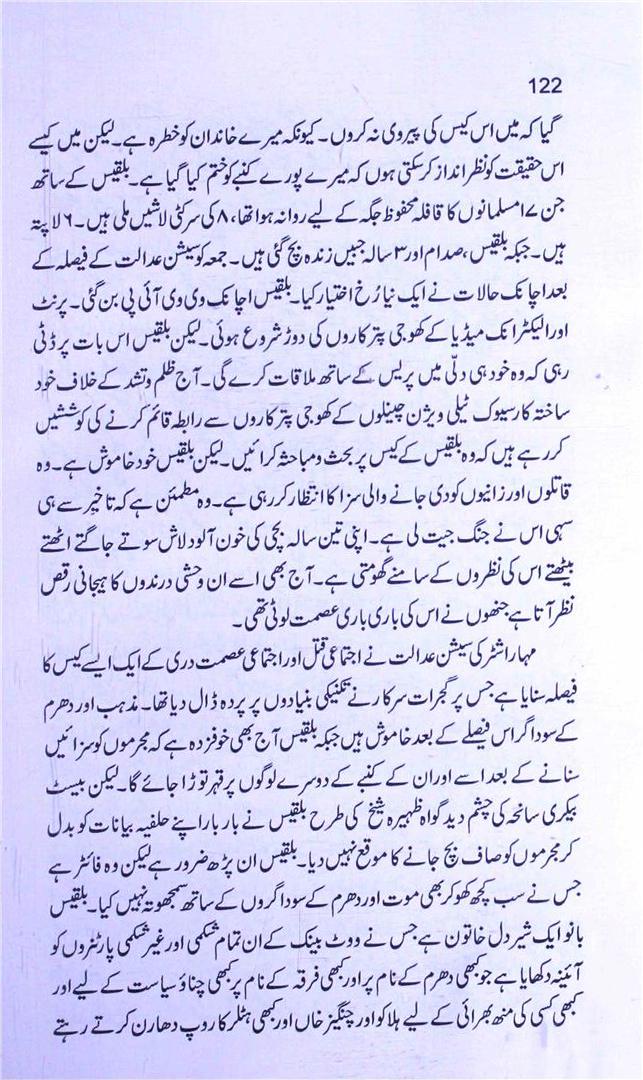 122
گیا کہ میں اس کیس کی پیروی نہ کروں۔ کیونکہ میرے خاندان کو خطرہ ہے۔ لیکن میں کیسے
اس حقیقت کو نظر انداز کر سکتی ہوں کہ میرے پورے کنبے کو ختم کیا گیا ہے۔ بلقیس کے ساتھ
جن ۱۷مسلمانوں کا قافلہ محفوظ جگہ کے لیے روانہ ہوا تھا، ۸ کی سرکٹی لاشیں ملی ہیں۔ ۶ لا پتہ
ہیں۔ جبکہ بلقیس، صدام اور ۳ سالہ جبیں زندہ بچ گئی ہیں۔ جمعہ کو سیشن عدالت کے فیصلہ کے
بعد اچانک حالات نے ایک نیا رُخ اختیار کیا۔ بلقیس اچانک وی وی آئی پی بن گئی۔ پرنٹ
اور الیکٹرانک میڈیا کے کھوجی پترکاروں کی دوڑ شروع ہوئی۔ لیکن بلقیس اس بات پر ڈٹی
رہی کہ وہ خود ہی دلّی میں پریس کے ساتھ ملاقات کرے گی۔ آج ظلم و تشد کے خلاف خود
ساختہ کارسیوک ٹیلی ویژن چینلوں کے کھوجی پترکاروں سے رابطہ قائم کرنے کی کوششیں
کر رہے ہیں کہ وہ بلقیس کے کیس پر بحث و مباحثہ کرائیں۔ لیکن بلقیس خود خاموش ہے۔ وہ
قاتلوں اور زانیوں کو دی جانے والی سزا کا انتظار کر رہی ہے۔ وہ مطمئن ہے کہ تاخیر سے ہی
سہی اس نے جنگ جیت لی ہے۔ اپنی تین سالہ بچی کی خون آلود لاش سوتے جاگتے اٹھتے
بیٹھتے اس کی نظروں کے سامنے گھومتی ہے۔ آج بھی اسے ان وحشی درندوں کا ہیجانی رقص
نظر آتا ہے جنھوں نے اس کی باری باری عصمت لوٹی تھی۔
مہاراشٹر کی سیشن عدالت نے اجتماعی قتل اور اجتماعی عصمت دری کے ایک ایسے کیس کا
فیصلہ سنایا ہے جس پر گجرات سرکار نے تکنیکی بنیادوں پر پردہ ڈال دیا تھا۔ مذہب اور دھرم
کے سوداگر اس فیصلے کے بعد خاموش ہیں جبکہ بلقیس آج بھی خوفزدہ ہے کہ مجرموں کو سزائیں
سنانے کے بعد اسے اور ان کے کنبے کے دوسرے لوگوں پر قہر توڑا جائے گا۔ لیکن بیسٹ
بیکری سانحہ کی چشم دید گواہ ظہیرہ شیخ کی طرح بلقیس نے بار بار اپنے حلفیہ بیانات کو بدل
کر مجرموں کو صاف بچ جانے کا موقع نہیں دیا۔ بلقیس ان پڑھ ضرور ہے لیکن وہ فائٹر ہے
جس نے سب کچھ کھو کر بھی موت اور دھرم کے سوداگروں کے ساتھ سمجھوتہ نہیں کیا۔ بلقیس
بانو ایک شیر دل خاتون ہے جس نے ووٹ بینک کے ان تمام شکمی اور غیر شکمی پارٹنروں کو
آئینہ دکھایا ہے جو کبھی دھرم کے نام پر اور کبھی فرقہ کے نام پر کبھی چناؤ سیاست کے لیے اور
کبھی کسی کی منھ بھرائی کے لیے ہلاکو اور چنگیز خاں اور کبھی ہٹلر کا روپ دھارن کرتے رہتے